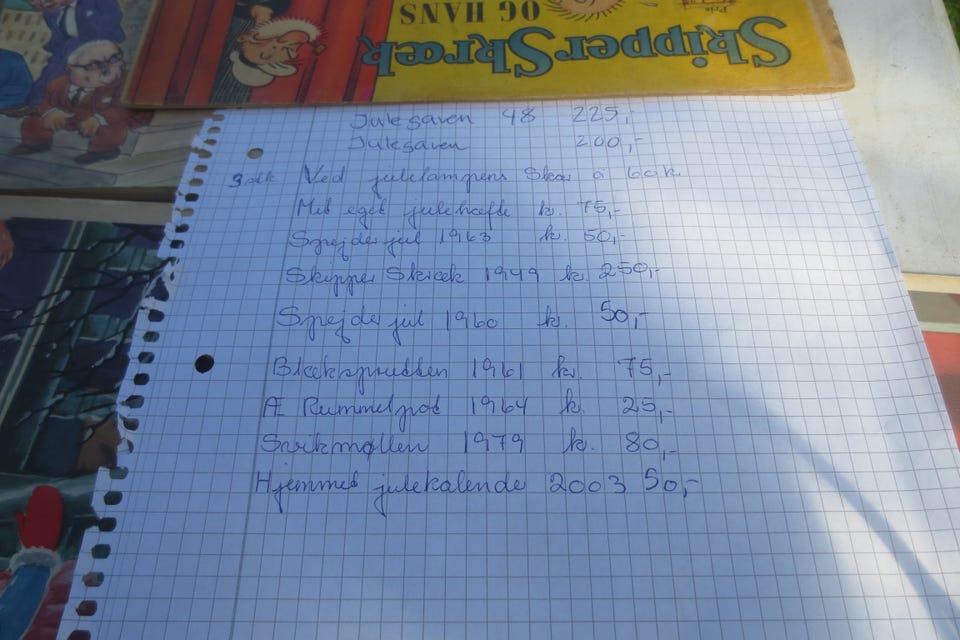 Pris
OG HANS
Skipper Skræk
Julegaven 48 225,-
Julegaven 200,-
3 stk Ved julelampens Skær à 60 k
Mit eget julehæfte k. 75,-
Spejder jul 1963 k. 50,-
Skipper Skræk 1949 k. 250,-
Spejder jul 1960 k. 50,-
Blæksprutten 1961 kr. 75,-
Æ Rummelpot 1964 k. 25,-
Svikmøllen 1979 k. 80,-
Hjemmet julekalende 2003 50,-